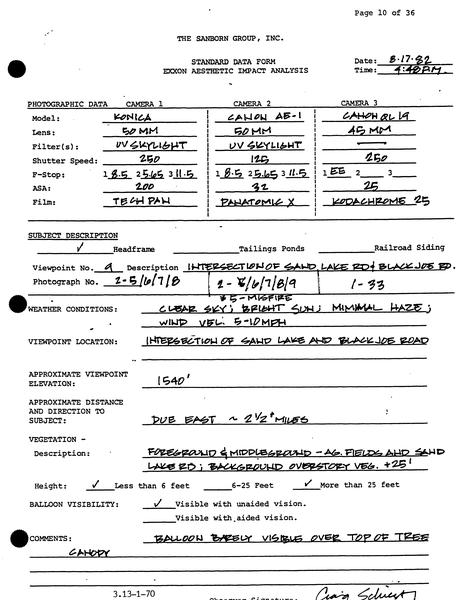 Page 10 of 36
THE SANBORN GROUP, INC.
STANDARD DATA FORM Date: 8·17·82
EXXON AESTHETIC IMPACT ANALYSIS Time: 4:40 P.M.
PHOTOGRAPHIC DATA CAMERA 1 CAMERA 2 CAMERA 3
Model: KONICA CANON AE-1 CANON QL 19
Lens: 50 MM 50 MM 45 MM
Filter(s): UV SKYLIGHT UV SKYLIGHT —
Shutter Speed: 250 125 250
F-Stop: 1 8.5 2 5.65 3 11.5 1 8.5 2 5.65 3 11.5 1 EE 2 3
ASA: 200 32 25
Film: TECH PAN PANATOMIC X KODACHROME 25
SUBJECT DESCRIPTION
✓ Headframe Tailings Ponds Railroad Siding
Viewpoint No. 9 Description INTERSECTION OF SAND LAKE RD & BLACK JOE RD.
Photograph No. 2-5/6/7/8 2-5/6/7/8/9 1-33
*5-MISFIRE
WEATHER CONDITIONS: CLEAR SKY; BRIGHT SUN; MINIMAL HAZE;
WIND VEL. 5-10 MPH
VIEWPOINT LOCATION: INTERSECTION OF SAND LAKE AND BLACK JOE ROAD
APPROXIMATE VIEWPOINT
ELEVATION: 1540'
APPROXIMATE DISTANCE
AND DIRECTION TO
SUBJECT: DUE EAST ~ 2 1/2 MILES
VEGETATION -
Description: FOREGROUND & MIDDLEGROUND - AG. FIELDS AND SAND
LAKE RD; BACKGROUND OVERSTORY VEG. +25'
Height: ✓ Less than 6 feet 6-25 Feet ✓ More than 25 feet
BALLOON VISIBILITY: ✓ Visible with unaided vision.
Visible with aided vision.
COMMENTS: BALLOON BARELY VISIBLE OVER TOP OF TREE
CANOPY
3.13-1-70
Observer Signature: Craig